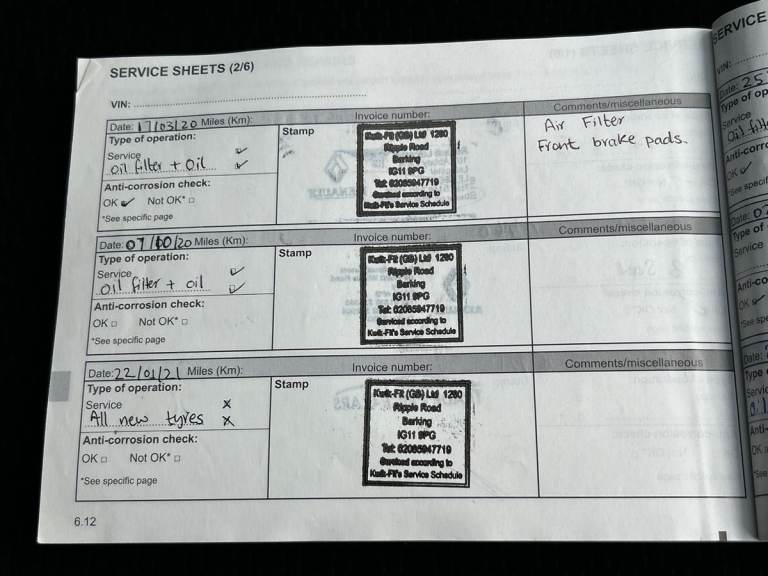 SERVICE SHEETS (2/6)
VIN:
Date: 17/03/20 Miles (Km): Invoice number: Comments/miscellaneous
Type of operation:
Service ✓
Oil filter + Oil ✓
Anti-corrosion check:
OK ✓ Not OK* □
*See specific page
Stamp
Kwik-Fit (GB) Ltd 1280
Ripple Road
Barking
IG11 9PG
Tel: 02085947719
Serviced according to
Kwik-Fit's Service Schedule
Air Filter
Front brake pads.
Date: 07/ /20 Miles (Km): Invoice number: Comments/miscellaneous
Type of operation:
Service ✓
Oil filter + oil ✓
Anti-corrosion check:
OK □ Not OK* □
*See specific page
Stamp
Kwik-Fit (GB) Ltd 1280
Ripple Road
Barking
IG11 9PG
Tel: 02085947719
Serviced according to
Kwik-Fit's Service Schedule
Date: 22/01/21 Miles (Km): Invoice number: Comments/miscellaneous
Type of operation:
Service x
All new tyres x
Anti-corrosion check:
OK □ Not OK* □
*See specific page
Stamp
Kwik-Fit (GB) Ltd 1280
Ripple Road
Barking
IG11 9PG
Tel: 02085947719
Serviced according to
Kwik-Fit's Service Schedule
6.12
SERVICE
VIN:
Date: 25
Type of op
Service
Oil filt
Anti-corro
OK ✓
*See specif
Date: 0
Type of
Service
Anti-co
OK ✓
*See spe
Date:
Type
Service
Anti-
OK
*See